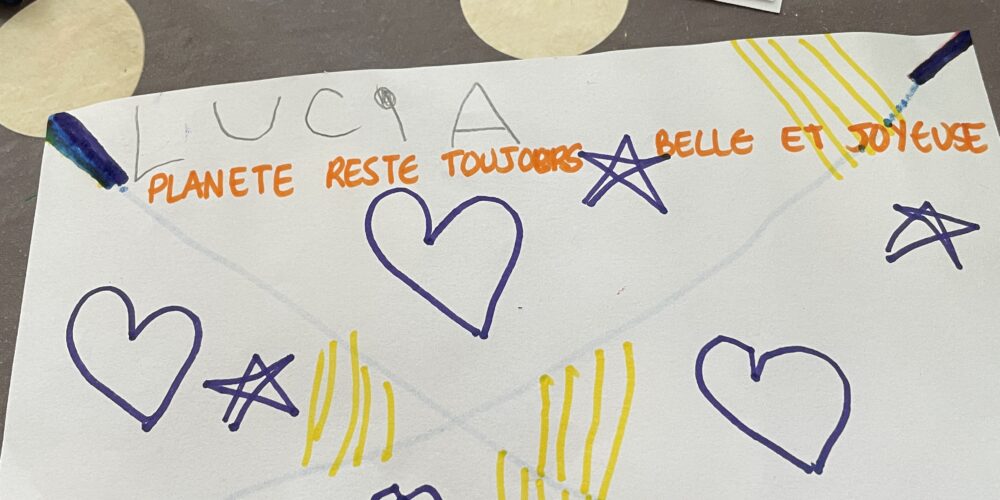 LUCIA
PLANETE RESTE TOUJOURS BELLE ET JOYEUSE